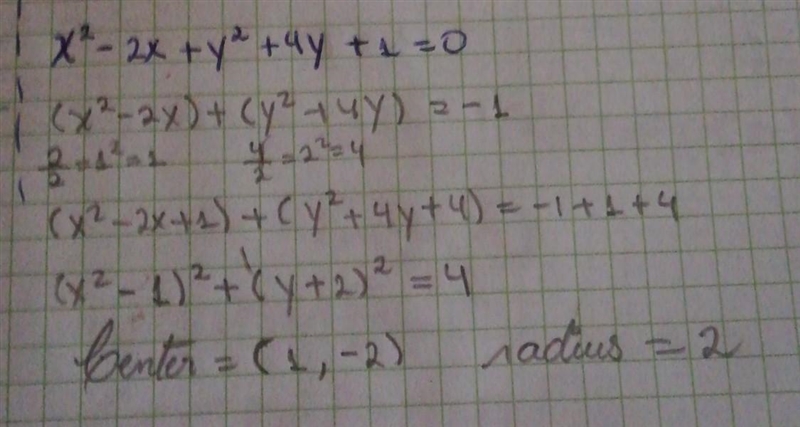 x² - 2x + y² + 4y + 1 = 0
(x² - 2x) + (y² + 4y) = -1
2/2 = 1² = 1 4/2 = 2² = 4
(x² - 2x + 1) + (y² + 4y + 4) = -1 + 1 + 4
(x² - 1)² + (y + 2)² = 4
Center = (1, -2) radius = 2